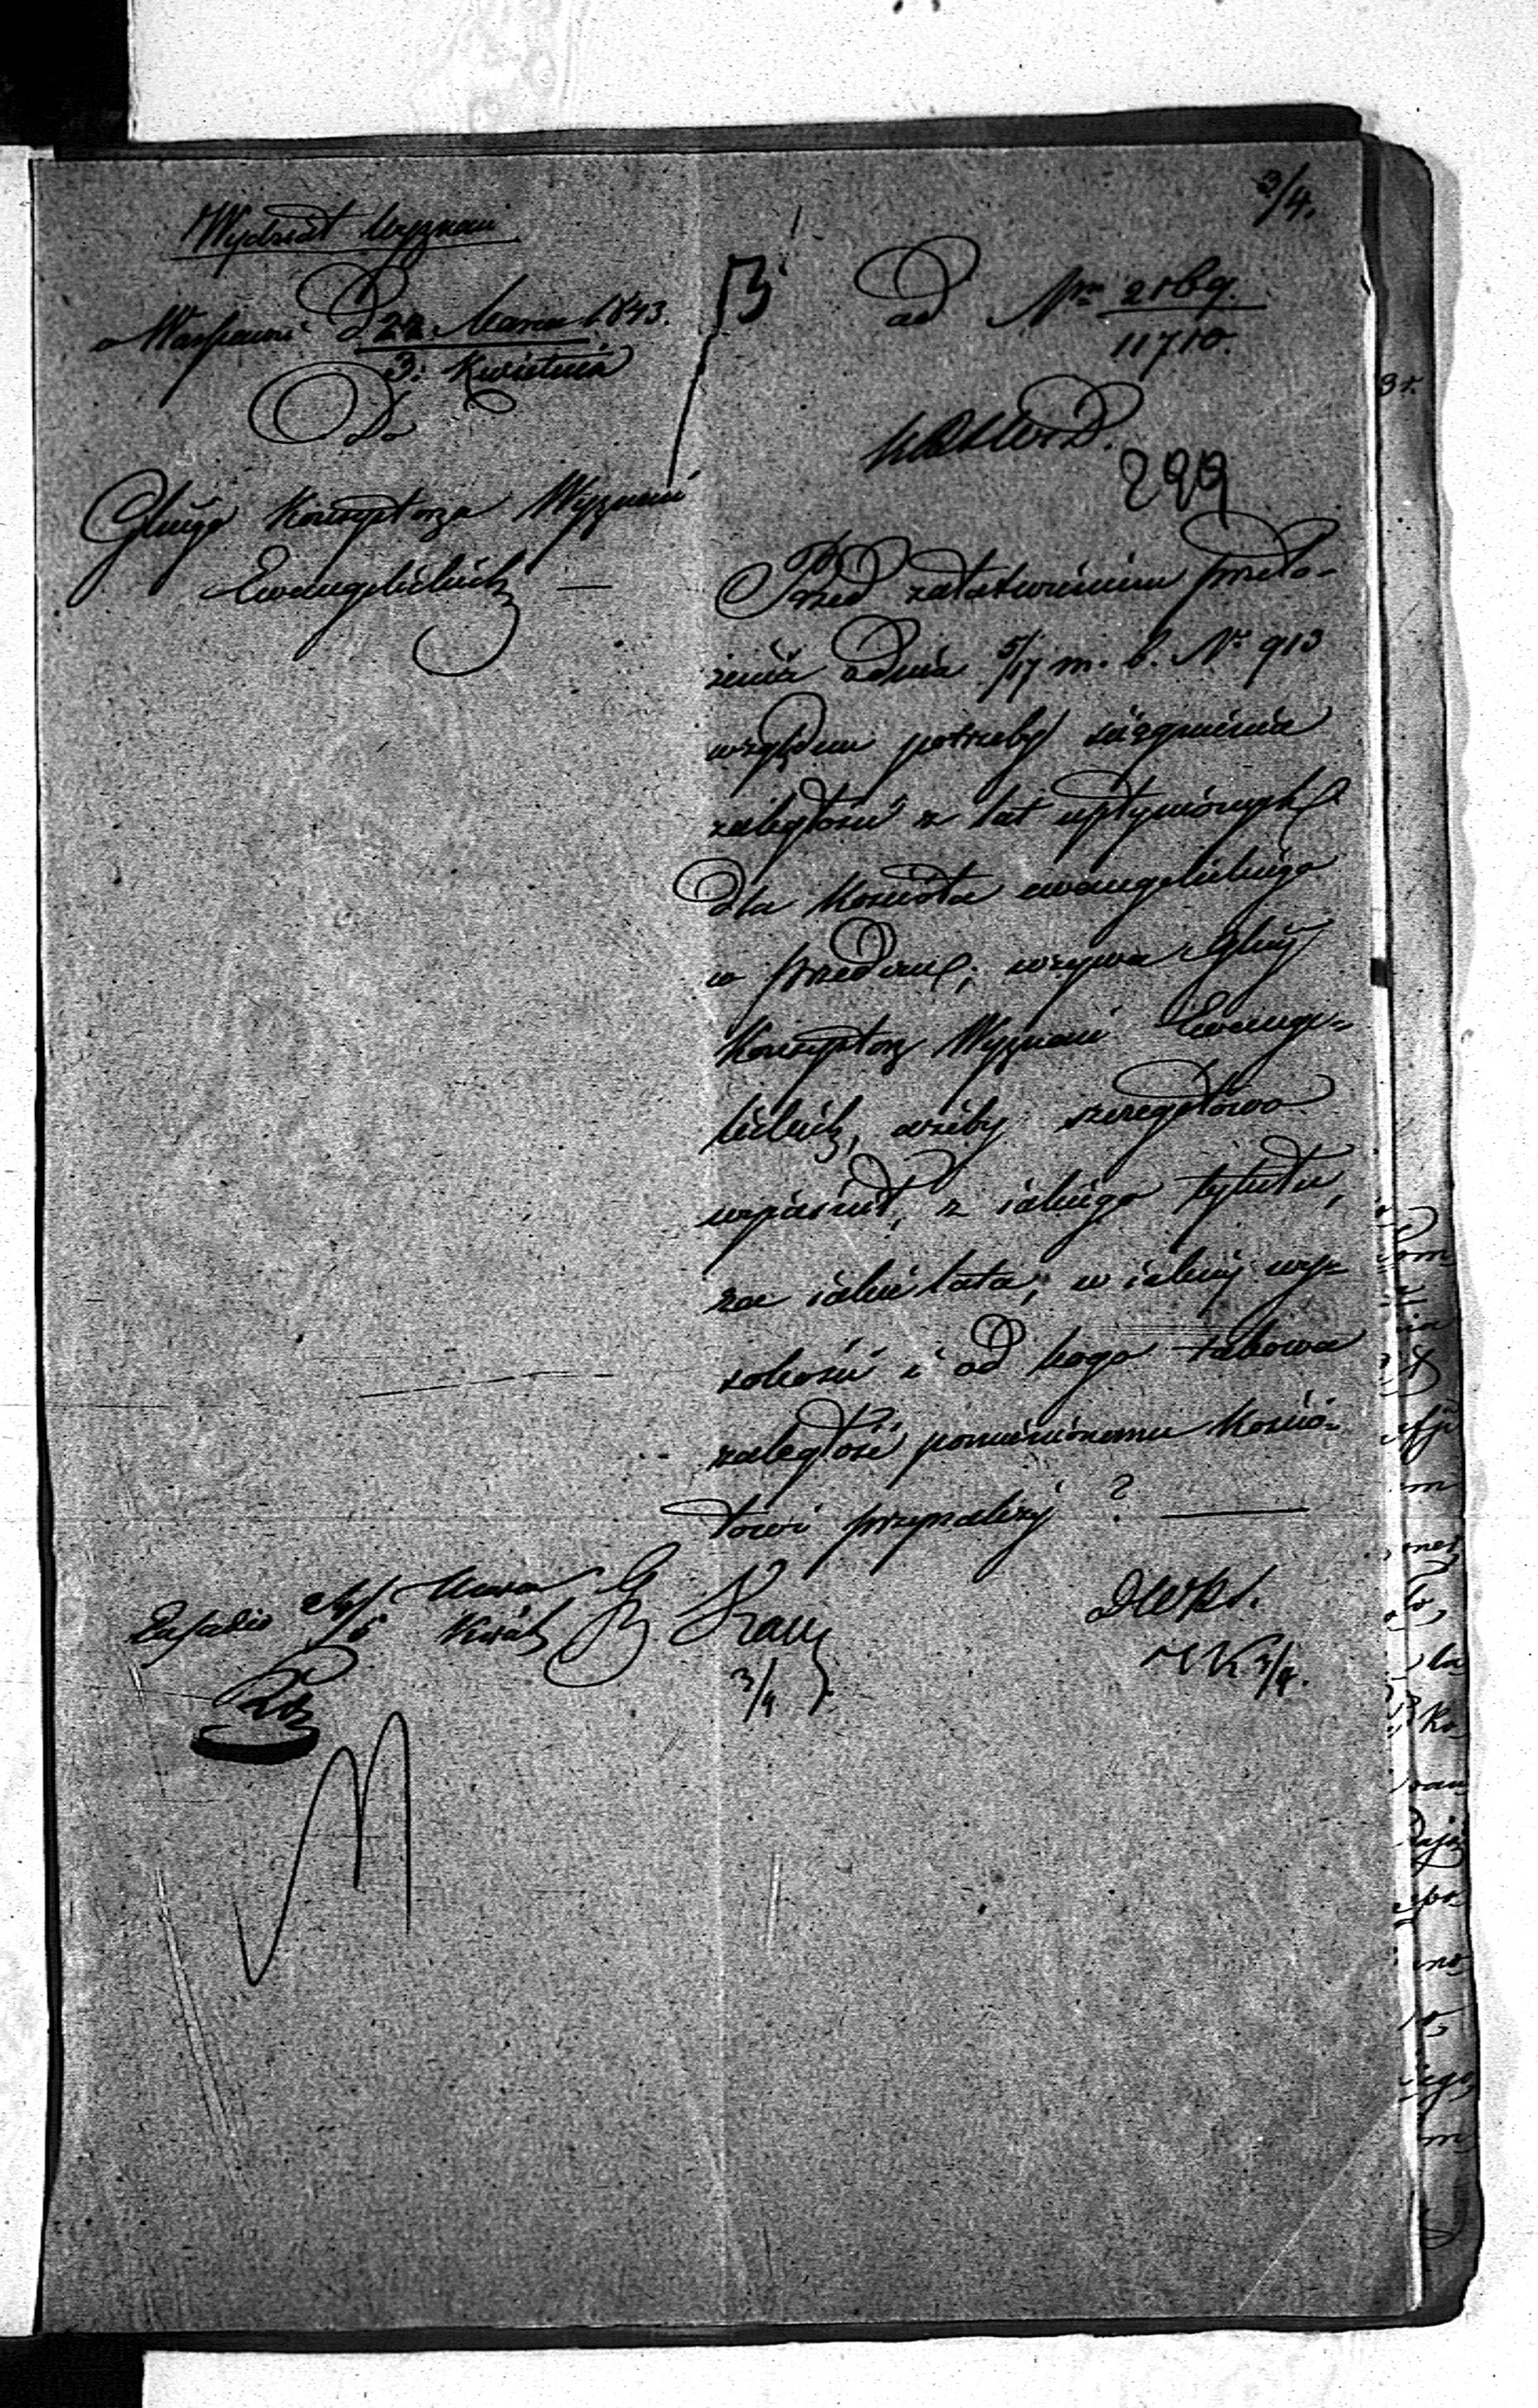 3/4.
Wydział Wyznań
w Warszawie d 22 Marca 1843.
3. Kwietnia
Do
Głnego Konsystorza Wyznań
Ewangelickich —
ad Nrm 2169.
11710.
299
Przed załatwieniem przeło-
żenia zdnia 5/17 m. b. No 913
względem potrzeby ściągnienia
zaległości z lat upłynionych
dla Kościoła ewangelickiego
w wzywa Głny
Konsystorz Wyznań Ewange-
lickich, ażeby szczegółowo
wyjaśnił, z iakiego tytułu,
za iakie lata, w iakiey wy-
sokości i od kogo takowa
zaległość pomienionemu Kościo-
łowi przynależy? —
3/4
DWRt.
3/4.